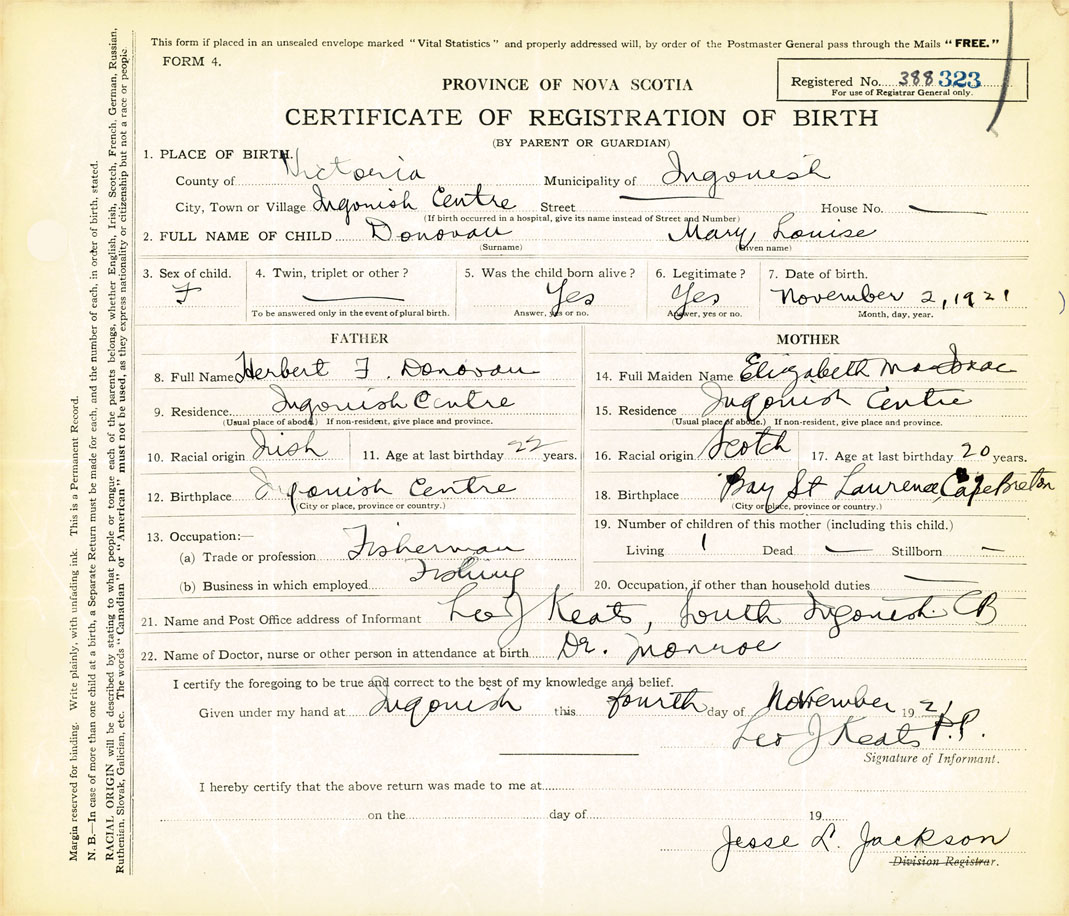 This form if placed in an unsealed envelope marked "Vital Statistics" and properly addressed will, by order of the Postmaster General pass through the Mails "FREE."
FORM 4.
Registered No. 388 323
For use of Registrar General only.
PROVINCE OF NOVA SCOTIA
CERTIFICATE OF REGISTRATION OF BIRTH
(BY PARENT OR GUARDIAN)
1. PLACE OF BIRTH.
County of Victoria Municipality of Ingonish
City, Town or Village Ingonish Centre Street — House No. —
(If birth occurred in a hospital, give its name instead of Street and Number)
2. FULL NAME OF CHILD Donovan Mary Louise
(Surname) (Given name)
3. Sex of child. 4. Twin, triplet or other? 5. Was the child born alive? 6. Legitimate? 7. Date of birth.
F — Yes Yes November 2, 1921
To be answered only in the event of plural birth. Answer, yes or no. Answer, yes or no. Month, day, year.
FATHER
8. Full Name Herbert F. Donovan
9. Residence Ingonish Centre
(Usual place of abode.) If non-resident, give place and province.
10. Racial origin Irish 11. Age at last birthday 22 years.
12. Birthplace Ingonish Centre
(City or place, province or country.)
13. Occupation:—
(a) Trade or profession Fisherman
(b) Business in which employed Fishing
MOTHER
14. Full Maiden Name Elizabeth MacIsaac
15. Residence Ingonish Centre
(Usual place of abode.) If non-resident, give place and province.
16. Racial origin Scotch 17. Age at last birthday 20 years.
18. Birthplace Bay St Lawrence, Cape Breton
(City or place, province or country.)
19. Number of children of this mother (including this child.)
Living 1 Dead — Stillborn —
20. Occupation, if other than household duties —
21. Name and Post Office address of Informant Leo J Keats, South Ingonish CB
22. Name of Doctor, nurse or other person in attendance at birth Dr. Monroe
I certify the foregoing to be true and correct to the best of my knowledge and belief.
Given under my hand at Ingonish this fourth day of November 1921
Leo J Keats P.P.
Signature of Informant.
I hereby certify that the above return was made to me at
on the day of 19
Jesse L. Jackson
Division Registrar.
Margin reserved for binding. Write plainly, with unfading ink. This is a Permanent Record.
N. B.—In case of more than one child at a birth, a Separate Return must be made for each, and the number of each, in order of birth, stated.
RACIAL ORIGIN will be described by stating to what people or tongue each of the parents belongs, whether English, Irish, Scotch, French, German, Russian,
Ruthenian, Slovak, Galician, etc. The words "Canadian" or "American" must not be used, as they express nationality or citizenship but not a race or people